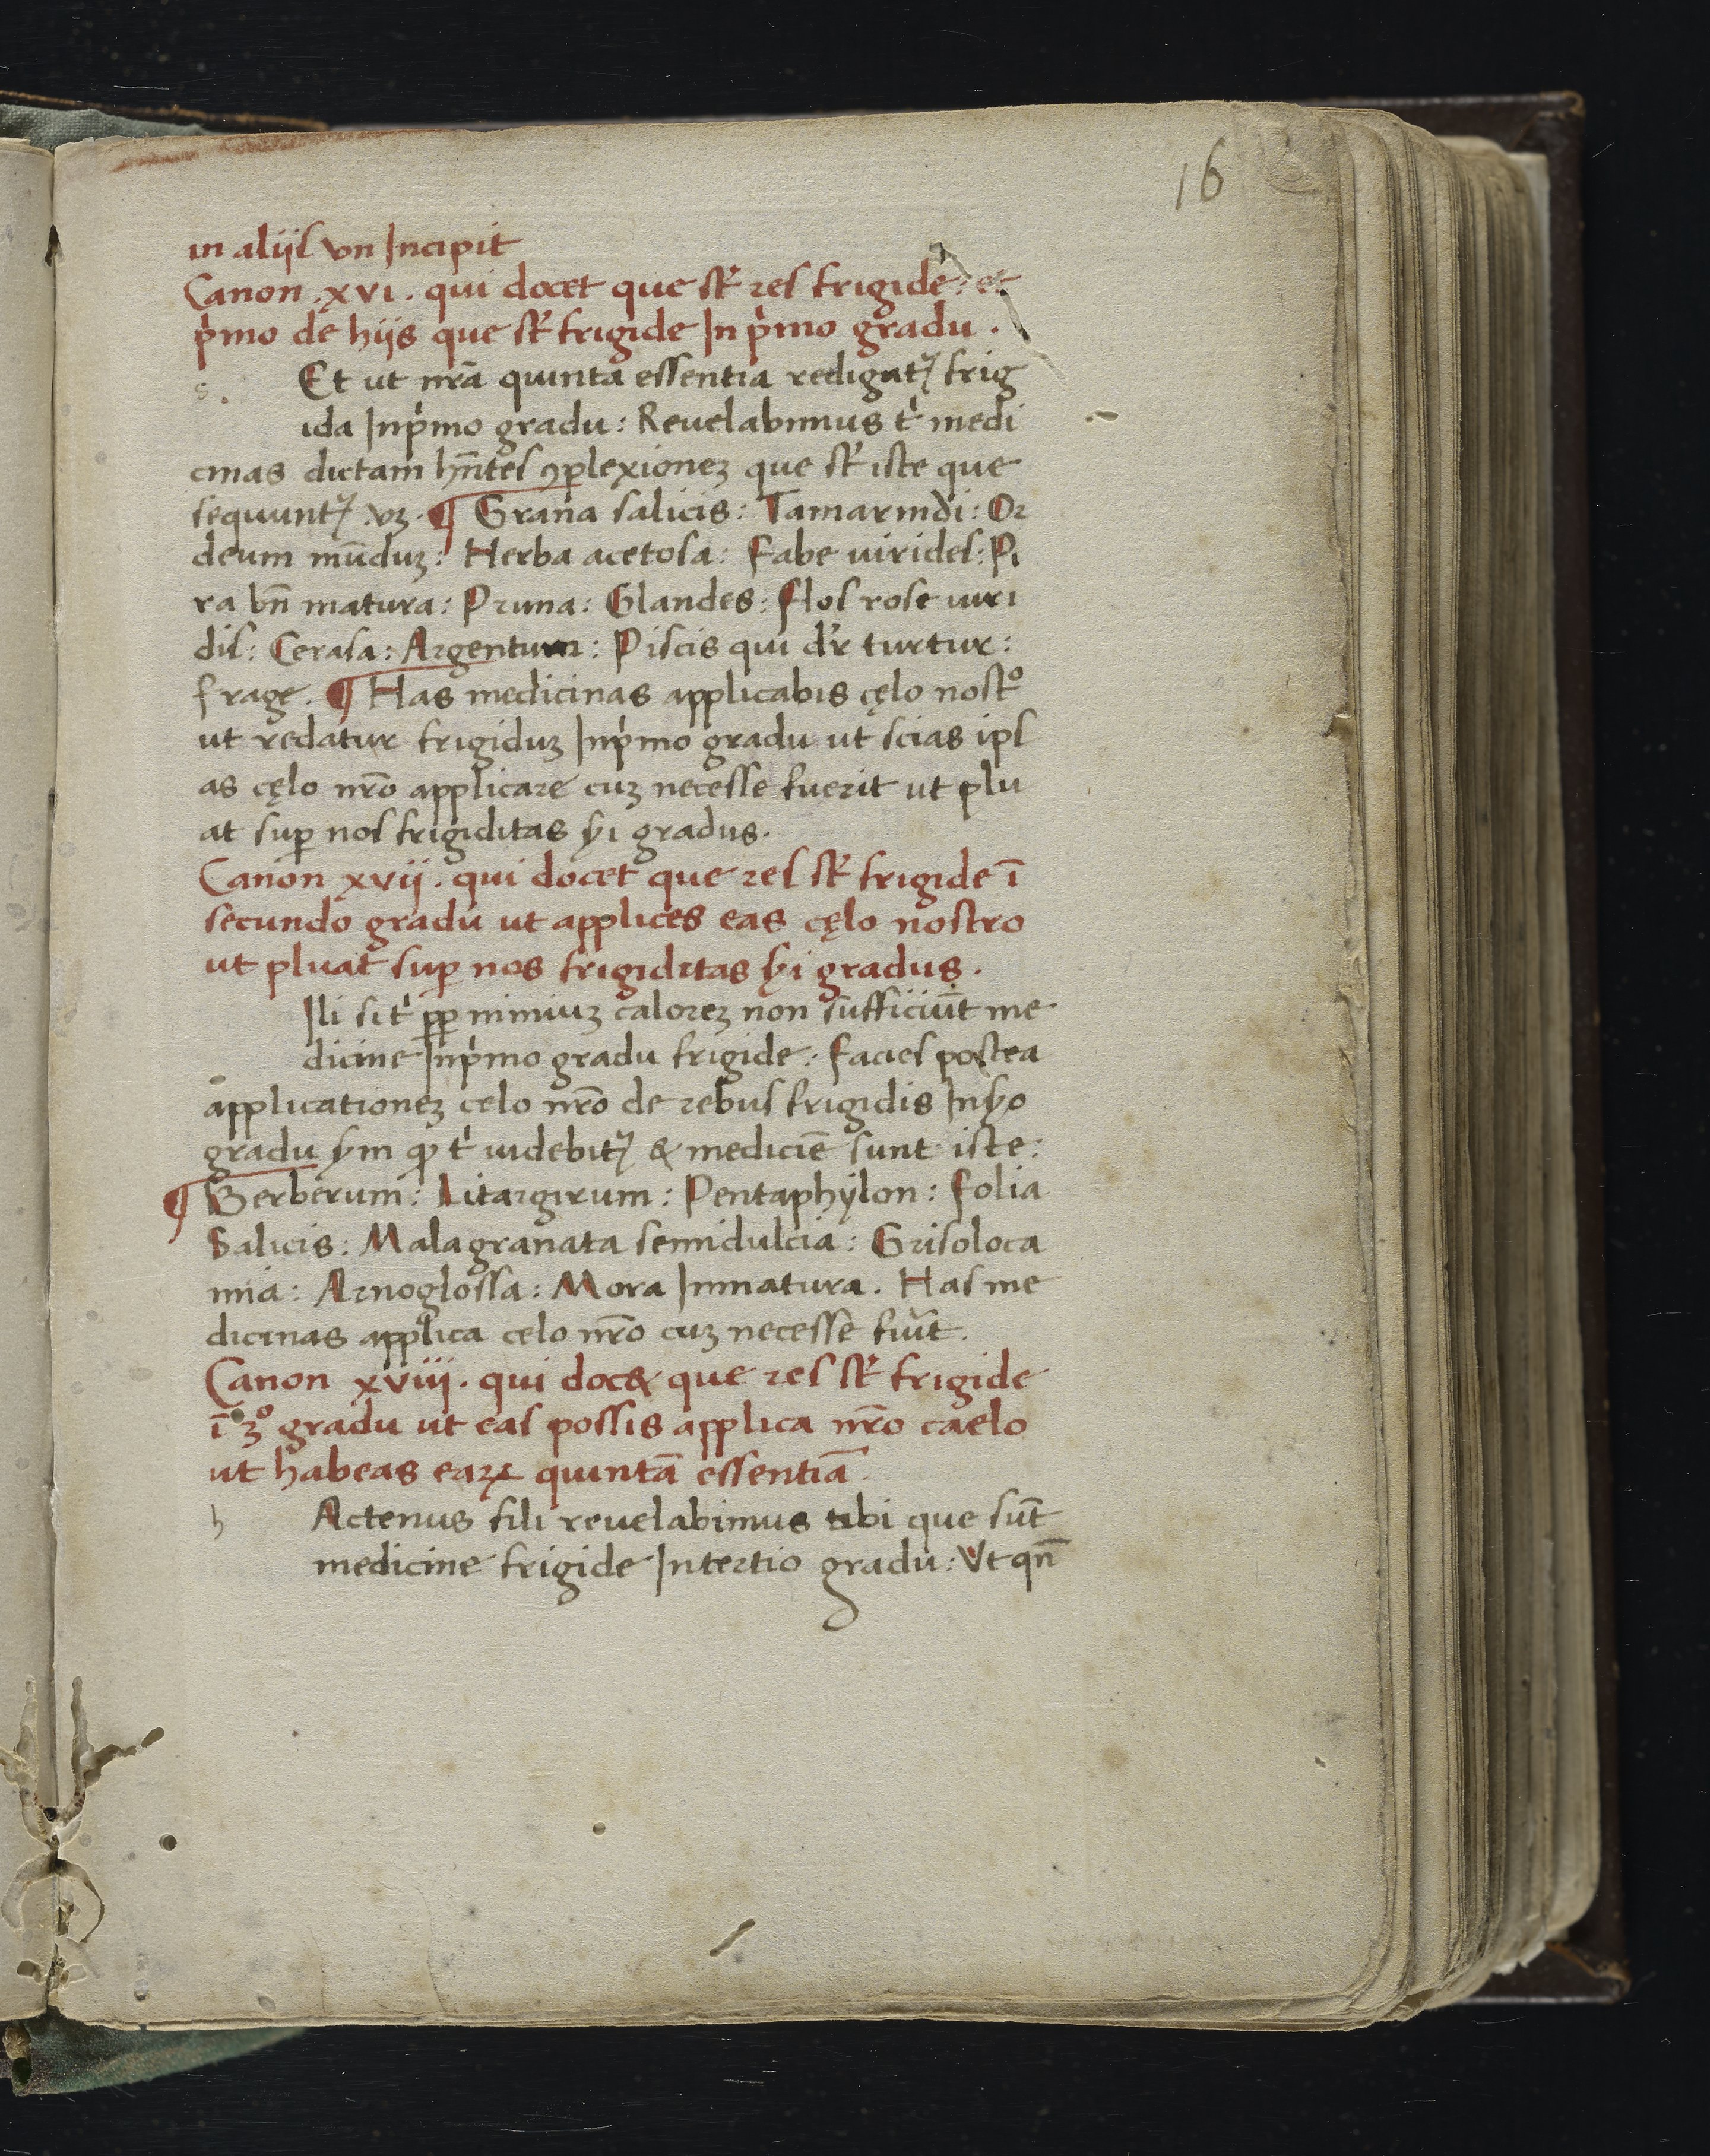 16
in aliis vn Incipit
Canon .xvi. qui docet que st̄ res frigide: et
p̍mo de hijs que st̄ frigide In p̍mo gradu.
s. Et ut nr̄a quinta essentia redigatꝭ frig
ida Inp̍mo gradu: Reuelabimus t̍ medi
cinas dictam hn̄tes ꝯplexioneʒ que st̄ iste que
sequuntꝭ vʒ. ¶ Grana salicis: Tamarindi: Or
deum mūduʒ: Herba acetosa: Fabe uirides: Pi
ra bn̄ matura: Pruna: Glandes: Flos rose uiri
dis: Cerasa: Argentum: Piscis qui dr̄ turtur:
frage. ¶ Has medicinas applicabis cęlo nostº
ut redatur frigiduʒ Inp̍mo gradu ut scias ips
as cęlo nr̄o applicare cuʒ necesse fuerit ut plu
at suꝑ nos frigiditas ẏi gradus.
Canon xvij. qui docet que res st̄ frigide ī
secundo gradu ut applices eas cęlo nostro
ut pluat suꝑ nos frigiditas ẏi gradus.
Ili si t̍ ꝓꝑ nimiuʒ caloreʒ non sufficiūt me
dicine Inp̍mo gradu frigide: facies postea
applicationeʒ celo nr̄o de rebus frigidis In ẏo
gradu ẏm ꝙ t̍ uidebitꝭ & medicīe sunt iste:
¶ Berberum: Litargirum: Pentaphÿlon: folia
Salicis: Malagranata semidulcia: Grisoloca
mia: Arnoglossa: Mora Inmatura. Has me
dicinas applica celo nr̄o cuʒ necesse fuīt.
Canon xviij. qui doc& que res st̄ frigide
ī 3º gradu ut eas possis applica nr̄o caelo
ut habeas eaꝝ quintā essentiā.
h Actenus fili reuelabimus tibi que sūt
medicine frigide Intertio gradu: Vt qn̄